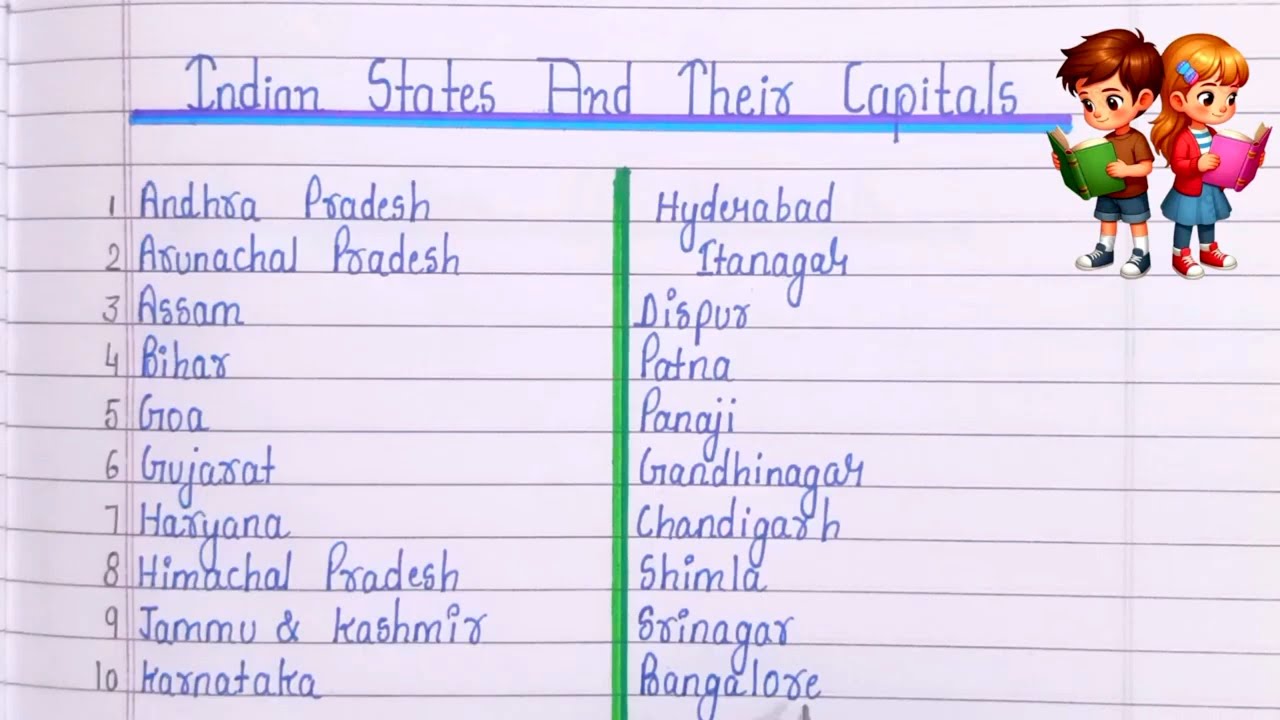 Indian States And Their Capitals
1 Andhra Pradesh Hyderabad
2 Arunachal Pradesh Itanagar
3 Assam Dispur
4 Bihar Patna
5 Goa Panaji
6 Gujarat Gandhinagar
7 Haryana Chandigarh
8 Himachal Pradesh Shimla
9 Jammu & Kashmir Srinagar
10 Karnataka Bangalore